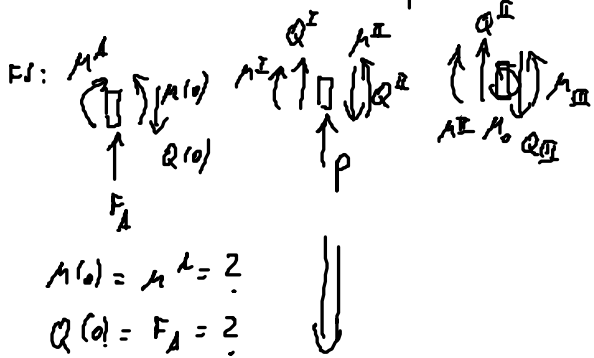 FS: M^A M(0) Q(0) F_A
M^I Q^I M^II Q^II P
Q^II M^II M_0 M_III Q_III
M(0) = M^A = ?
Q(0) = F_A = ?